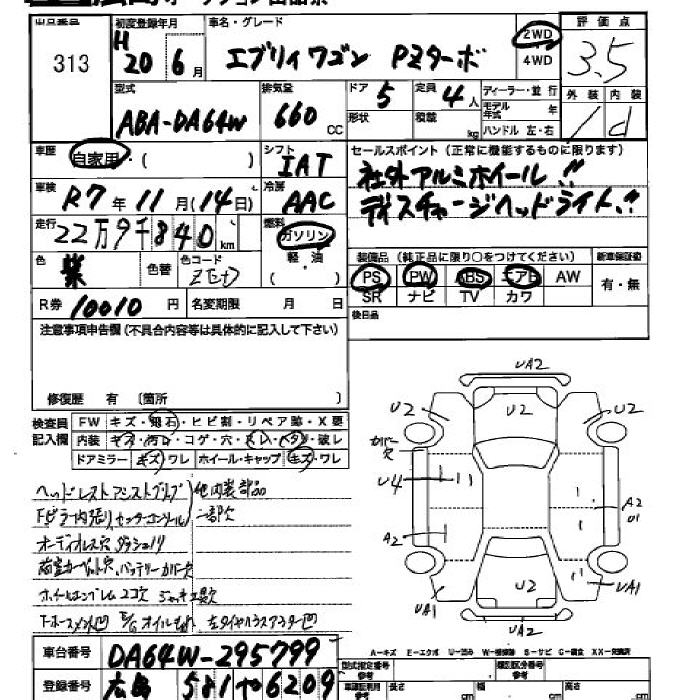 出品番号 初度登録年月 車名・グレード 評価点
313 H 20 6月 エブリィワゴン PZターボ 2WD 4WD 3.5
型式 排気量 ドア 定員 ディーラー・並行 外装 内装
ABA-DA64W 660 CC 5 4人 モデル年式 年 d
形状 積載 kg ハンドル 左・右
車歴 自家用・( ) シフト IAT セールスポイント（正常に機能するものに限ります）
車検 R7年11月(14日) 冷房 AAC 社外アルミホイール!!
走行 22万9千840km 燃料 ガソリン ディスチャージヘッドライト!!
軽・油 ( )
色 紫 色替 色コード 装備品（純正品に限り○をつけてください） 新車保証書
PS PW ABS エアB AW 有・無
SR ナビ TV カワ
R券 10010円 名変期限 月 日 後日品
注意事項申告欄（不具合内容等は具体的に記入して下さい）
修復歴 有 〔箇所 〕
検査員記入欄 FW キズ・飛石・ヒビ割・リペア跡・X要
内装 キズ・汚レ・コゲ・穴・スレ・ヘタリ・破レ
ドアミラー キズ・ワレ ホイール・キャップ キズ・ワレ
UA2
U2 U2 U2
カバー欠
U4
A2 A2
U1
U2
UA1 UA1
UA2
ヘッドレスト アシストグリップ 他内装部品
Fピラー内張り、センターコンソール 一部欠
オーディオレス穴 ダッシュノリ
荷室カーペット穴、バッテリーカバー欠
ホイールエンブレム2コ欠 ジャッキ工具欠
E/Gオイルもれ
A-キズ E-エクボ U-凹み W-補修跡 S-サビ C-腐食 XX-交換済
車台番号 DA64W-295799
型式指定番号 類別区分番号
登録番号 広島 581 や 6209
長さ cm 幅 cm 高さ cm